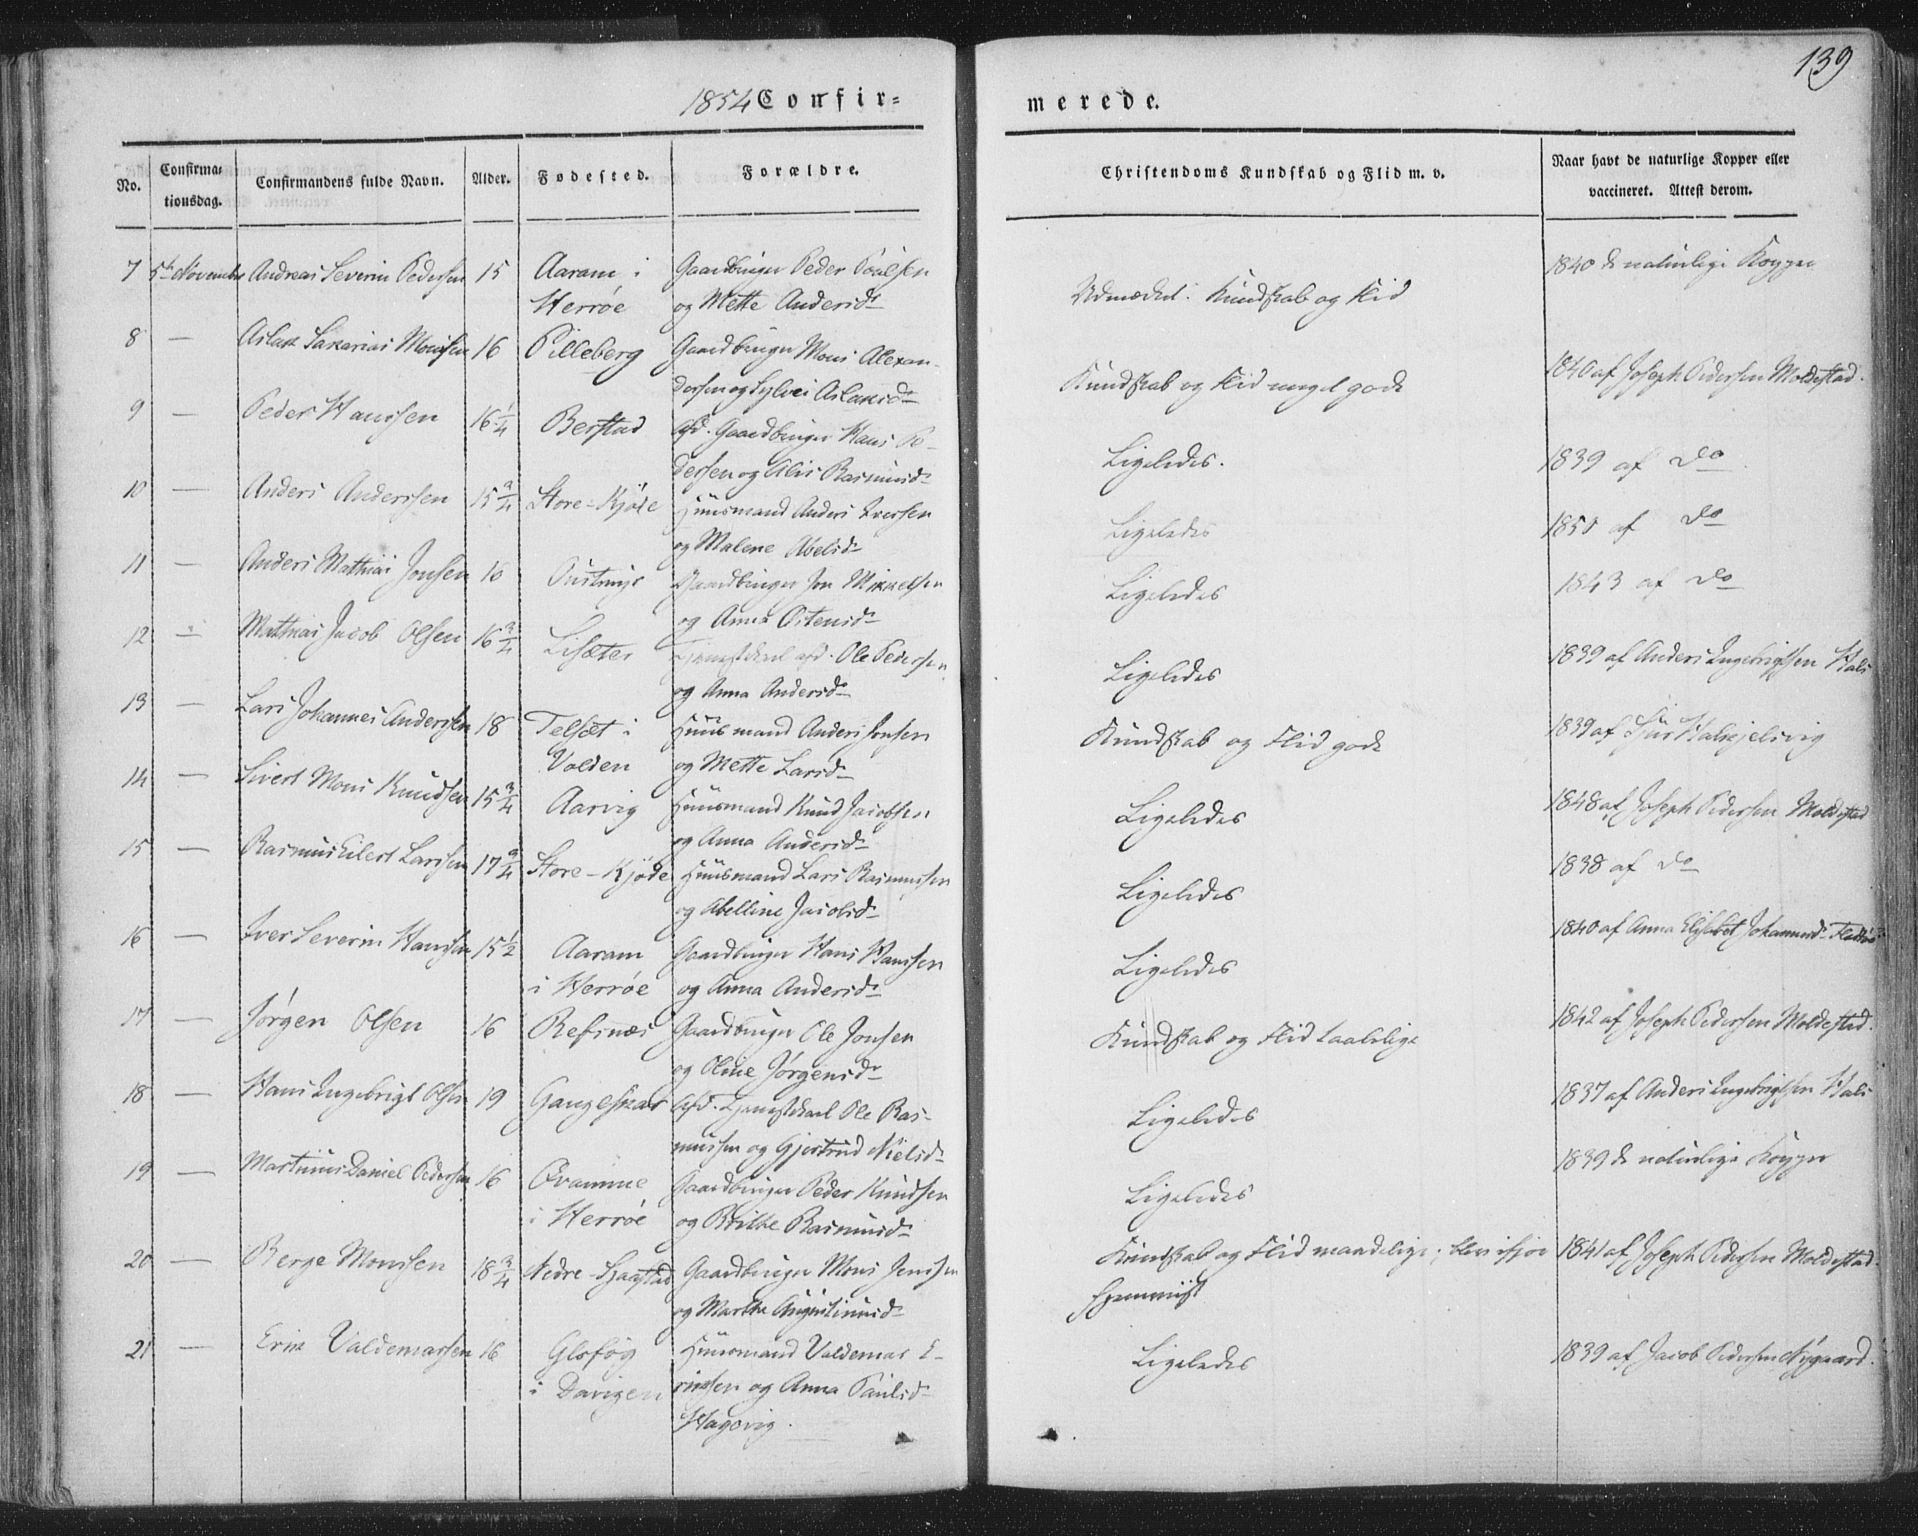 139
1854 Confir=
merede.
No.
Confirma=
tionsdag.
Confirmandens fulde Navn.
Alder.
Fødested.
Forældre.
Christendoms Kundskab og Flid m. v.
Naar havt de naturlige Kopper eller
vaccineret. Attest derom.
7 5te November Andreas Severin Pedersen 15 Aaram i Gaardbruger Peder Poulsen
Herröe og Mette Andersdr
Udmærket Kundskab og Flid
1840 de naturlige Kopper
8 — Aslak Sakarias Monsen 16 Pilleberg Gaardbruger Mons Alexan-
dersen og Sylvei Aslaksdr
Kundskab og Flid meget gode
1840 af Joseph Pedersen Moldestad.
9 — Peder Hanssen 16 1/4 Berstad Afd. Gaardbruger Hans Pe-
dersen og Alis Rasmusdr
Ligeledes.
1839 af do
10 — Anders Anderssen 15 3/4 Store-Kjöde Huusmand Anders Iversen
og Malene Abelsdr
Ligeledes
1851 af do
11 — Anders Mathias Jonsen 16 Gaardbruger Jon Mikaelsen
og Anne Ostensdr
Ligeledes
1843 af do
12 — Mathias Jacob Olsen 16 3/4 Lisæter Tjenestekarl afd. Ole Pedersen
og Anna Andersdr
Ligeledes
1839 af Anders Ingebrigtsen Hals
13 — Lars Johannes Anderssen 18 Telsæt i Huusmand Anders Jonsen
Volden og Mette Larsdr
Kundskab og Flid gode
1839 af Sjur
14 — Sivert Mons Knudsen 15 3/4 Aarvig Huusmand Knud Jacobsen
og Anna Andersdr
Ligeledes
1848 af Joseph Pedersen Moldestad
15 — Rasmus Eilert Larssen 17 3/4 Store-Kjöde Huusmand Lars Rasmussen
og Abelline Jacobsdr
Ligeledes
1838 af do
16 — Iver Severin Hanssen 15 1/2 Aaram Gaardbruger Hans Hanssen
i Herröe og Anna Andersdr
Ligeledes
1840 af Anna Elisabet Johannesdr
17 — Jörgen Olsen 16 Refsnæs Gaardbruger Ole Jonsen
og Oline Jörgensdr
Kundskab og Flid taalelige
1842 af Joseph Pedersen Moldestad.
18 — Hans Ingebrigt Olsen 19 Gangelskar Afd. Tjenestekarl Ole Ras-
mussen og Gjertrud Nielsdr
Ligeledes
1837 af Anders Ingebrigtsen Hals
19 — Martinus Daniel Pedersen 16 Qvamme Gaardbruger Peder Knudsen
i Herröe og Brithe Rasmusdr
Ligeledes
1839 de naturlige Kopper
20 — Berge Monssen 18 3/4 Nedre-Hjaastad Gaardbruger Mons Jenssen
og Marthe Augustinusdr
Kundskab og Flid maadelige; blev ifjor
hjemviist
1841 af Joseph Pedersen Moldestad.
21 — Erik Valdemarsen 16 Huusmand Valdemar E-
i Davigen riksen og Anna Paulsdr
Hagevig.
Ligeledes
1839 af Jacob Pedersen Nygaard.